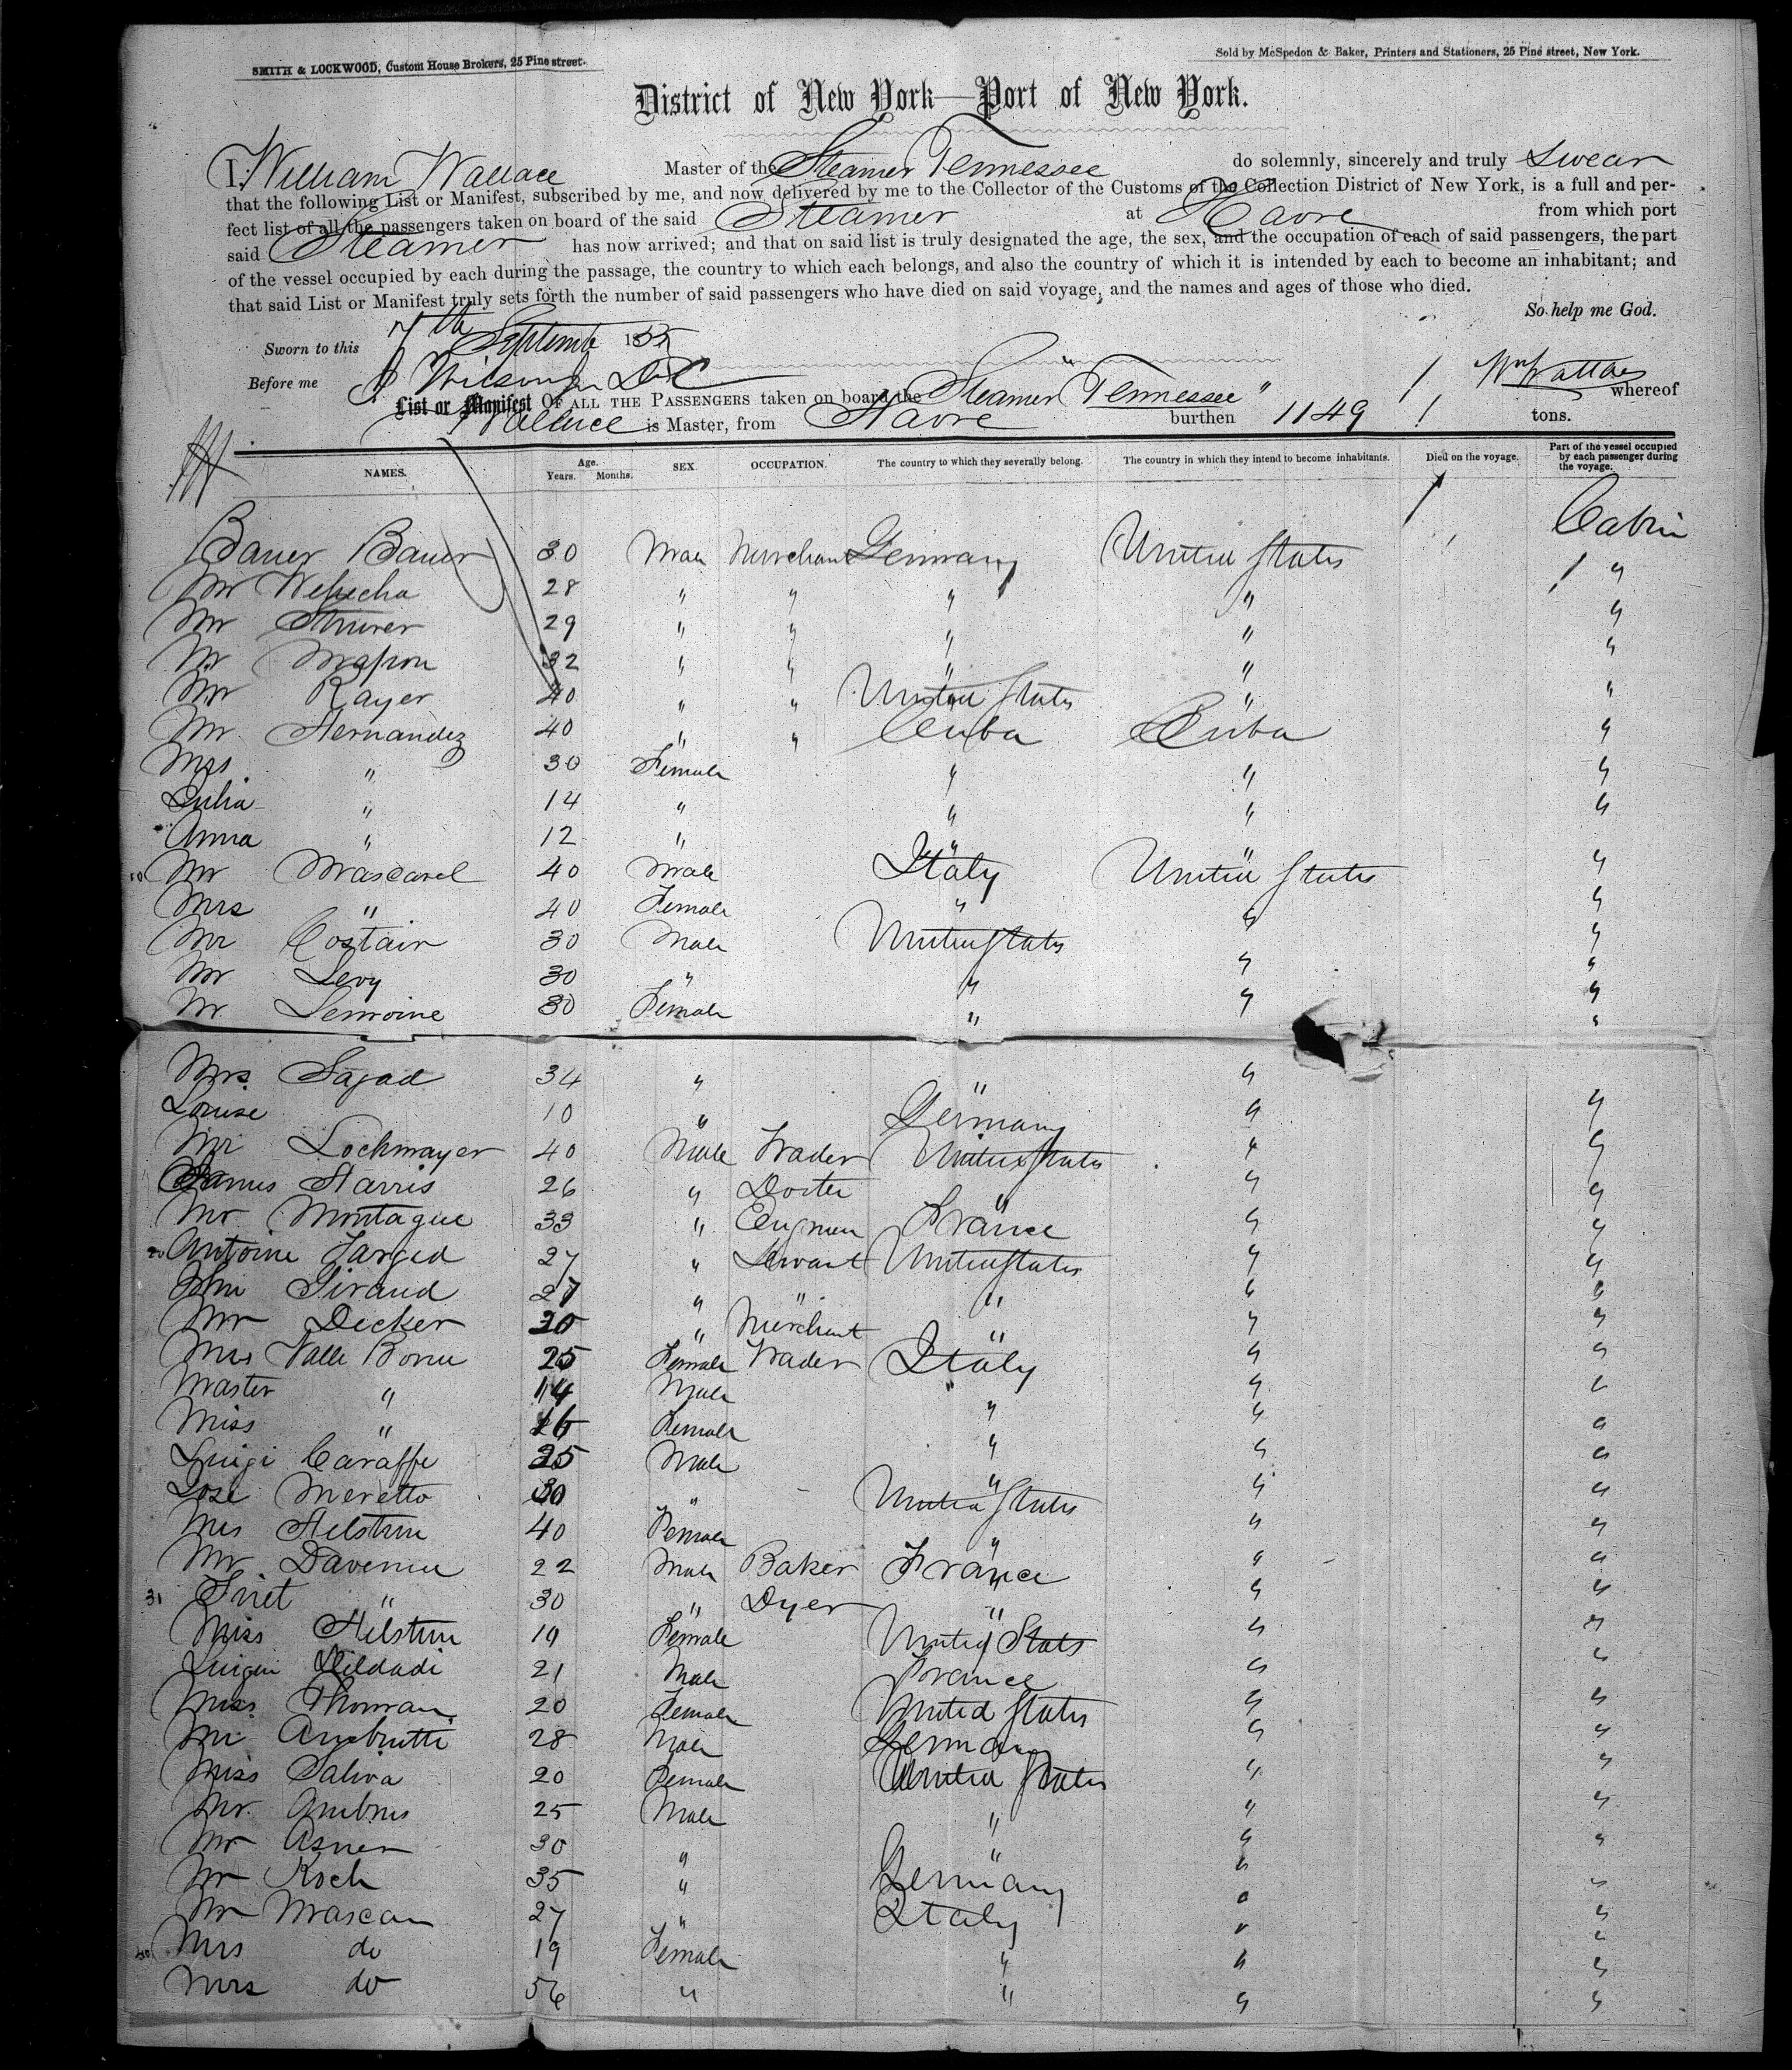 SMITH & LOCKWOOD, Custom House Brokers, 25 Pine street.
Sold by McSpedon & Baker, Printers and Stationers, 25 Pine street, New York.
District of New York—Port of New York.
I, William Wallace Master of the Steamer Tennessee do solemnly, sincerely and truly swear
that the following List or Manifest, subscribed by me, and now delivered by me to the Collector of the Customs of the Collection District of New York, is a full and per-
fect list of all the passengers taken on board of the said Steamer at Havre from which port
said Steamer has now arrived; and that on said list is truly designated the age, the sex, and the occupation of each of said passengers, the part
of the vessel occupied by each during the passage, the country to which each belongs, and also the country of which it is intended by each to become an inhabitant; and
that said List or Manifest truly sets forth the number of said passengers who have died on said voyage, and the names and ages of those who died.
So help me God.
Sworn to this 7th September 1855
Before me Wilson Wm Wallace
List or Manifest OF ALL THE PASSENGERS taken on board the Steamer "Tennessee" whereof
Wallace is Master, from Havre burthen 1149 tons.
NAMES. Age. Years. Months. SEX. OCCUPATION. The country to which they severally belong. The country in which they intend to become inhabitants. Died on the voyage. Part of the vessel occupied by each passenger during the voyage.
Bauer Bauer 30 Male Merchant Germany United States Cabin
Mr 28 " " " " "
Mr 29 " " " " "
Mr 32 " " " " "
Mr Rayer 40 " " United States " "
Mr. Hernandez 40 " " Cuba Cuba "
Mrs " 30 Female " " "
Julia " 14 " " " "
Anna " 12 " " " "
10 Mr Mascarel 40 Male Italy United States "
Mrs " 40 Female " " "
Mr Costair 30 Male United States " "
Mr Levy 30 " " " "
Mr Lemoine 30 Female " " "
Mrs Sajad 34 " " "
Louise 10 " Germany " "
Mr Lockmayer 40 Male Trader United States " "
James Harris 26 " Doctor " "
Mr Montague 33 " France " "
20 Antoine 27 " Servant United States " "
John Giraud 27 " " " " "
Mr Decker 30 " Merchant " " "
Mrs Valle 25 Female Trader Italy " "
Master " 14 Male " " "
Miss " 16 Female " " "
Luigi Caraffe 25 Male " " "
Jose Meretto 30 " United States " "
Mrs 40 Female " " "
Mr 22 Male Baker France " "
31 " 30 " Dyer " " "
Miss 19 Female United States " "
21 Male France " "
Miss 20 Female United States " "
Mr 28 Male Germany " "
Miss Saliva 20 Female United States " "
Mr. 25 Male " " "
Mr Asner 30 " " " "
Mr Koch 35 " Germany " "
Mr 27 " Italy " "
40 Mrs do 19 Female " " "
Mrs do 56 " " " "